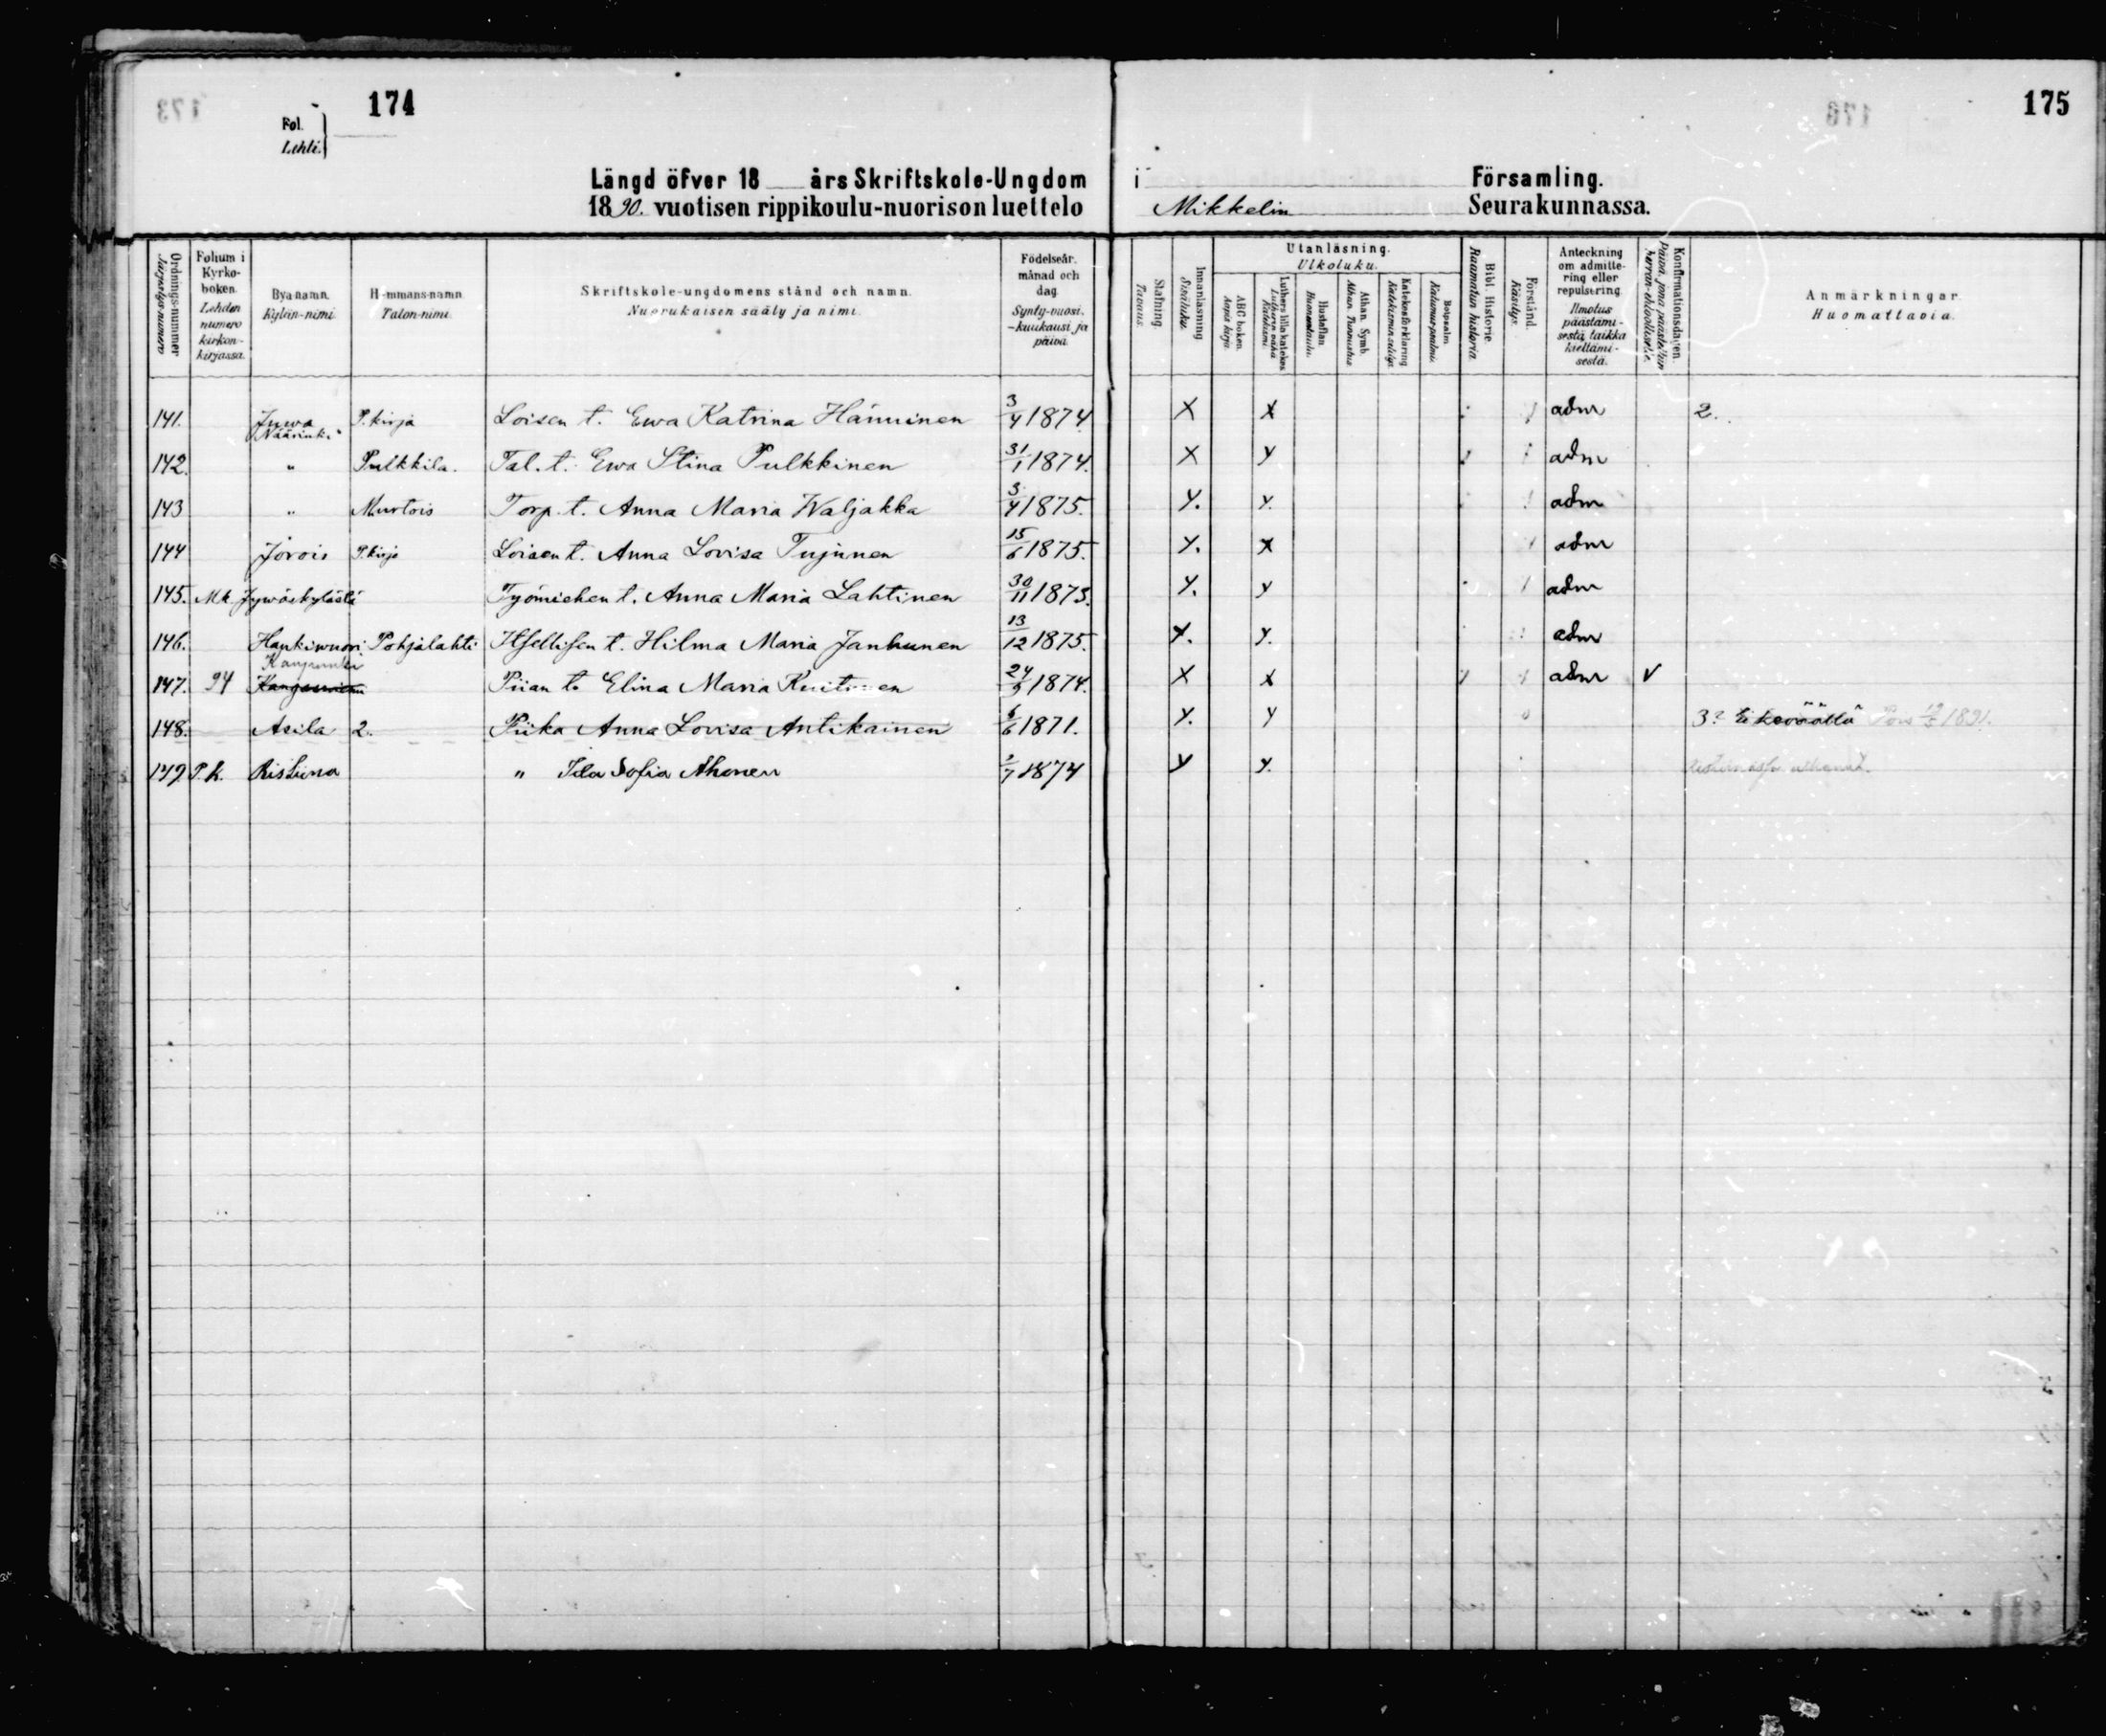 174
175
Fol.
Lehti.
Längd öfver 18 års Skriftskole-Ungdom i Församling.
1890. vuotisen rippikoulu-nuorison luettelo Mikkelin Seurakunnassa.
Ordnings-nummer Järjestys-numero
Folium i Kyrko-boken. Lehden numero kirkon-kirjassa.
Byanamn. Kylän-nimi
Hemmans-namn Talon-nimi.
Skriftskole-ungdomens stånd och namn. Nuorukaisen sääty ja nimi.
Födelseår. månad och dag. Synty-vuosi. -kuukausi ja päivä
Stafning. Tavaus.
Innanläsning Sisäluku.
Utanläsning. Ulkoluku.
ABC boken. Aapis kirja.
Luthers lilla katekes Lutherin vähä Katekismi
Hustaflan. Huoneentaulu.
Athan. Symb. Athan. Tunnustus.
Katekesförklaring Katekismin selitys.
Botpsalm. Katumus-psalmi.
Bibl. Historie. Raamatun historia.
Förstånd. Käsitys.
Anteckning om admitte-ring eller repulsering. Ilmotus päästämi-sestä taikka kieltämi-sestä.
Konfirmationsdagen. Päivä, jona päästettiin herran-ehtoolliselle.
Anmärkningar. Huomattavia.
141. Juwa Näärinki P. kirja Loisen t. Ewa Katrina Hänninen 3/4 1874 X X adm 2.
142. " Pulkkila. Tal. t. Ewa Stina Pulkkinen 31/1 1874. X y adm
143 " Murtois Torp. t. Anna Maria Waljakka 3/4 1875. y. y. adm
144 Jorois P. kirja Loisen t. Anna Lovisa Tujunen 15/6 1875. y. X adm
145. Mk. Jywäskylästä Työmiehen t. Anna Maria Lahtinen 30/11 1873. y. y adm
146. Haukiwuori Pohjalahti Itsellisen t. Hilma Maria Janhunen 13/12 1875. y. y. adm
147. 94 Kangasniemi Piian t. Elina Maria 1874. X X adm V
148. Asila 2. Piika Anna Lovisa Antikainen 6/6 1871. y. y 3? Ei keväällä Pois 1891.
149. P. k. Ristiina " Ida Sofia Ahonen /7 1874 y y.